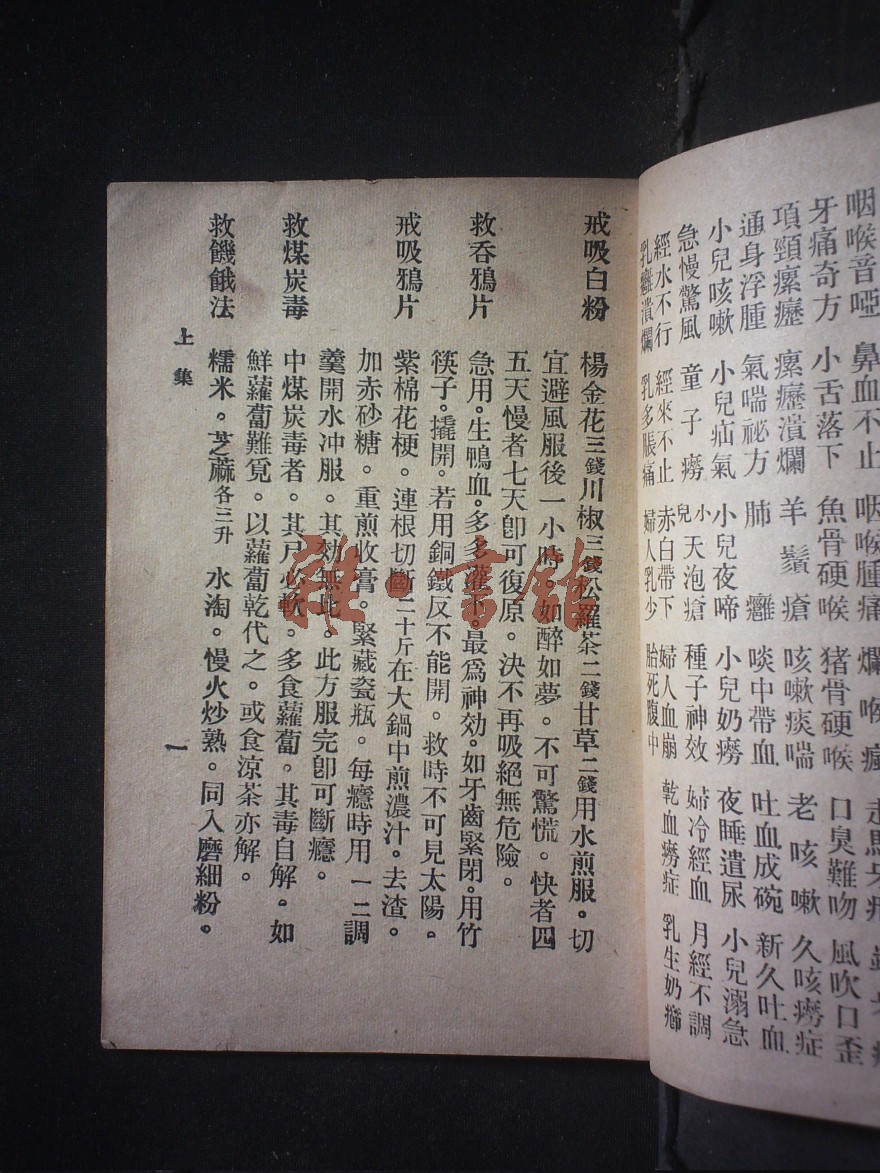 咽喉音啞 鼻血不止 咽喉腫痛 爛喉瘋 走馬牙
牙痛奇方 小舌落下 魚骨硬喉 猪骨硬喉 口臭難吻 風吹口歪
項頸瘰癧 瘰癧潰爛 羊鬚瘡 咳嗽痰喘 老咳嗽 久咳癆症
通身浮腫 氣喘祕方 肺癰 啖中帶血 吐血成碗 新久吐血
小兒咳嗽 小兒疝氣 小兒夜啼 小兒奶癆 夜睡遺尿 小兒溺急
急慢驚風 童子癆 小兒天泡瘡 種子神效 婦冷經血 月經不調
經水不行 經來不止 赤白帶下 婦人血崩 乾血癆症 乳生奶癤
乳癰潰爛 乳多脹痛 婦人乳少 胎死腹中
戒吸白粉 楊金花三錢川椒三錢松羅茶二錢甘草二錢用水煎服。切
宜避風服後一小時。如醉如夢。不可驚慌。快者四
五天慢者七天卽可復原。決不再吸絕無危險。
救吞鴉片 急用。生鴨血。多多灌下。最爲神効。如牙齒緊閉。用竹
筷子。撬開。若用銅鐵反不能開。救時不可見太陽。
戒吸鴉片 紫棉花梗。連根切斷二十斤在大鍋中煎濃汁。去渣。
加赤砂糖。重煎收膏。緊藏瓷瓶。每癮時用一二調
羹開水冲服。其効無比。此方服完卽可斷癮。
救煤炭毒 中煤炭毒者。其尸必軟。多食蘿蔔。其毒自解。如
鮮蘿蔔難覓。以蘿蔔乾代之。或食涼茶亦解。
救饑餓法 糯米。芝蔴各三升 水淘。慢火炒熟。同入磨細粉。
上集
一
雜·書館